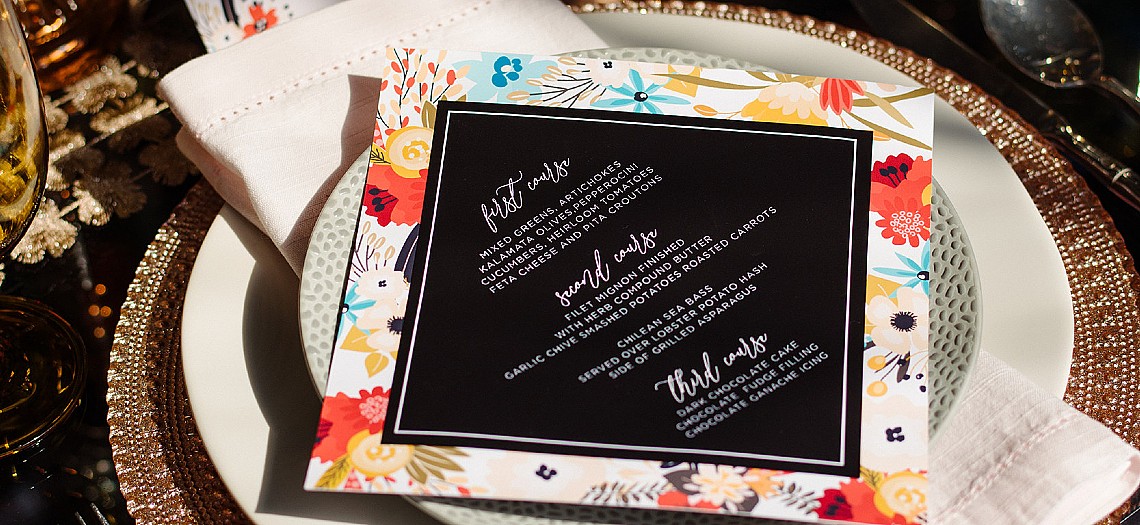 first course
MIXED GREENS, ARTICHOKES
KALAMATA OLIVES,PEPPEROCINI
CUCUMBERS, HEIRLOOM TOMATOES
FETA CHEESE AND PITA CROUTONS
second course
FILET MIGNON FINISHED
WITH HERB COMPOUND BUTTER
GARLIC CHIVE SMASHED POTATOES ROASTED CARROTS
CHILEAN SEA BASS
SERVED OVER LOBSTER POTATO HASH
SIDE OF GRILLED ASPARAGUS
third course
DARK CHOCOLATE CAKE
CHOCOLATE FUDGE FILLING
CHOCOLATE GANACHE ICING